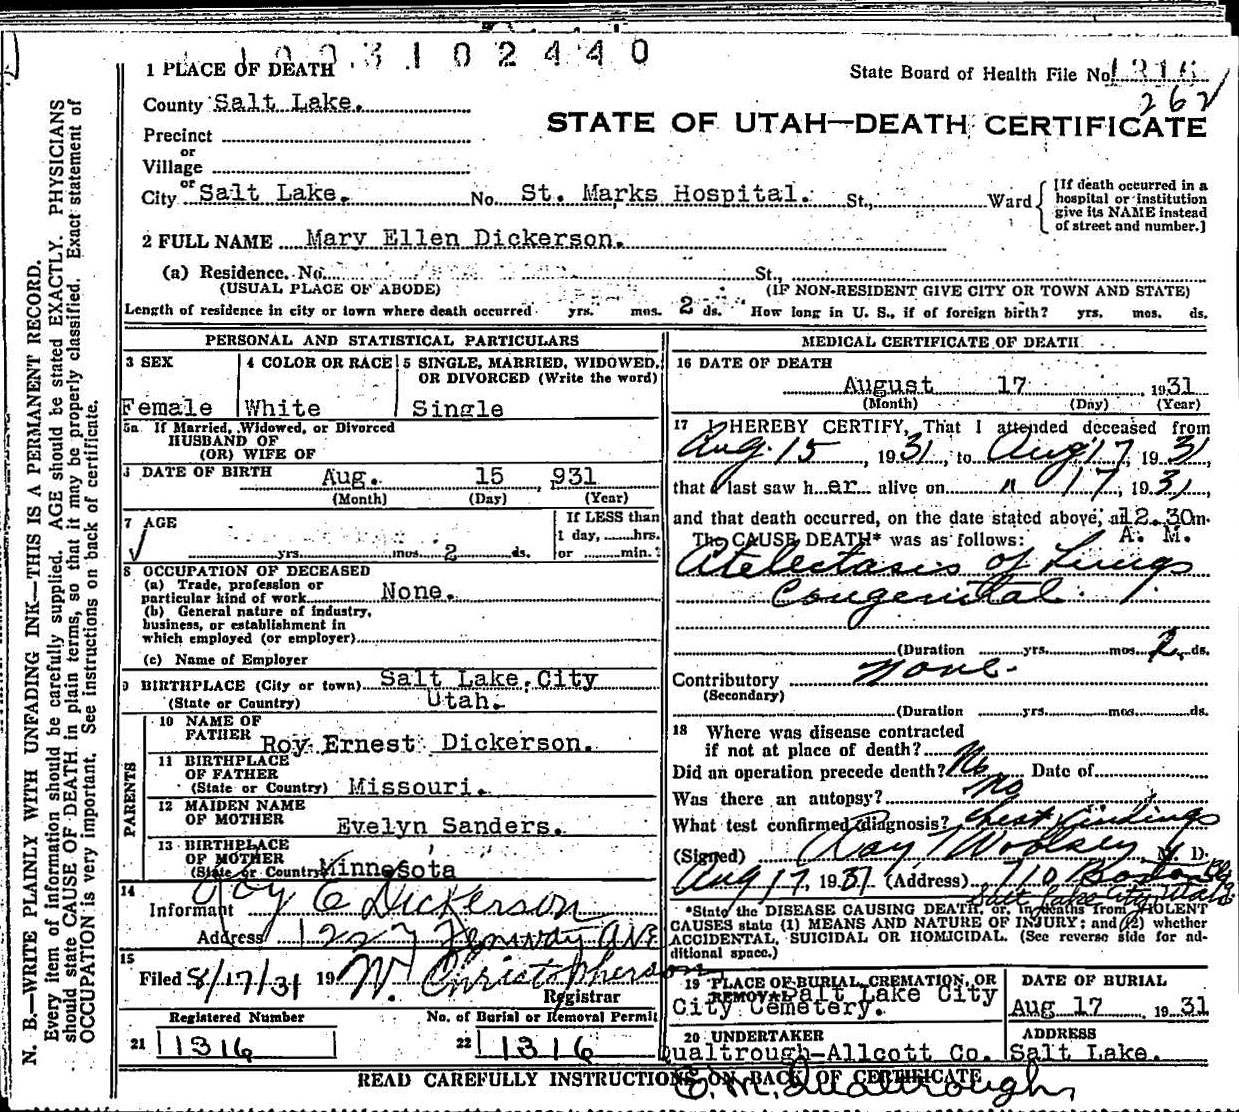 1 0 0 3 1 0 2 4 4 0
1 PLACE OF DEATH
State Board of Health File No. 1316
262
County Salt Lake.
STATE OF UTAH—DEATH CERTIFICATE
Precinct
or
Village
or
City Salt Lake. No. St. Marks Hospital. St., Ward
[If death occurred in a hospital or institution give its NAME instead of street and number.]
2 FULL NAME Mary Ellen Dickerson.
(a) Residence. No. St.,
(USUAL PLACE OF ABODE) (IF NON-RESIDENT GIVE CITY OR TOWN AND STATE)
Length of residence in city or town where death occurred yrs. mos. 2 ds. How long in U. S., if of foreign birth? yrs. mos. ds.
PERSONAL AND STATISTICAL PARTICULARS
3 SEX
Female
4 COLOR OR RACE
White
5 SINGLE, MARRIED, WIDOWED, OR DIVORCED (Write the word)
Single
5a If Married, Widowed, or Divorced
HUSBAND OF
(OR) WIFE OF
6 DATE OF BIRTH Aug. 15, 931
(Month) (Day) (Year)
7 AGE
yrs. mos. 2 ds.
If LESS than
1 day, hrs.
or min.?
8 OCCUPATION OF DECEASED
(a) Trade, profession or
particular kind of work None.
(b) General nature of industry,
business, or establishment in
which employed (or employer)
(c) Name of Employer
9 BIRTHPLACE (City or town) Salt Lake City
(State or Country) Utah.
PARENTS
10 NAME OF
FATHER Roy Ernest Dickerson.
11 BIRTHPLACE
OF FATHER
(State or Country) Missouri.
12 MAIDEN NAME
OF MOTHER Evelyn Sanders.
13 BIRTHPLACE
OF MOTHER
(State or Country) Minnesota
14
Informant Roy E Dickerson
Address 1227 Fenway Ave
15
Filed 8/17/31 19 W. Christopherson
Registrar
Registered Number
21 1316
No. of Burial or Removal Permit
22 1316
MEDICAL CERTIFICATE OF DEATH
16 DATE OF DEATH
August 17 1931
(Month) (Day) (Year)
17 I HEREBY CERTIFY, That I attended deceased from
Aug. 15, 1931, to Aug 17, 1931,
that I last saw her alive on " 17, 1931,
and that death occurred, on the date stated above, at 12.30 m.
A. M.
The CAUSE DEATH* was as follows:
Atelectasis of Lungs
Congenital.
(Duration yrs. mos. 2 ds.
Contributory None.
(Secondary)
(Duration yrs. mos. ds.
18 Where was disease contracted
if not at place of death?
Did an operation precede death? No Date of
Was there an autopsy? no
What test confirmed diagnosis? Chest findings
(Signed) Ray Woolsey M. D.
Aug 17, 1931 (Address) 710 Boston Bldg
Salt Lake City, Utah
*State the DISEASE CAUSING DEATH, or, in deaths from VIOLENT
CAUSES state (1) MEANS AND NATURE OF INJURY; and (2) whether
ACCIDENTAL, SUICIDAL OR HOMICIDAL. (See reverse side for ad-
ditional space.)
19 PLACE OF BURIAL, CREMATION, OR
REMOVAL Salt Lake City
City Cemetery.
DATE OF BURIAL
Aug 17 1931
20 UNDERTAKER
Qualtrough-Allcott Co.
ADDRESS
Salt Lake.
READ CAREFULLY INSTRUCTIONS ON BACK OF CERTIFICATE
E. M. Qualtrough,
N. B.—WRITE PLAINLY WITH UNFADING INK—THIS IS A PERMANENT RECORD.
Every item of Information should be carefully supplied. AGE should be stated EXACTLY. PHYSICIANS
should state CAUSE OF DEATH in plain terms, so that it may be properly classified. Exact statement of
OCCUPATION is very important. See instructions on back of certificate.